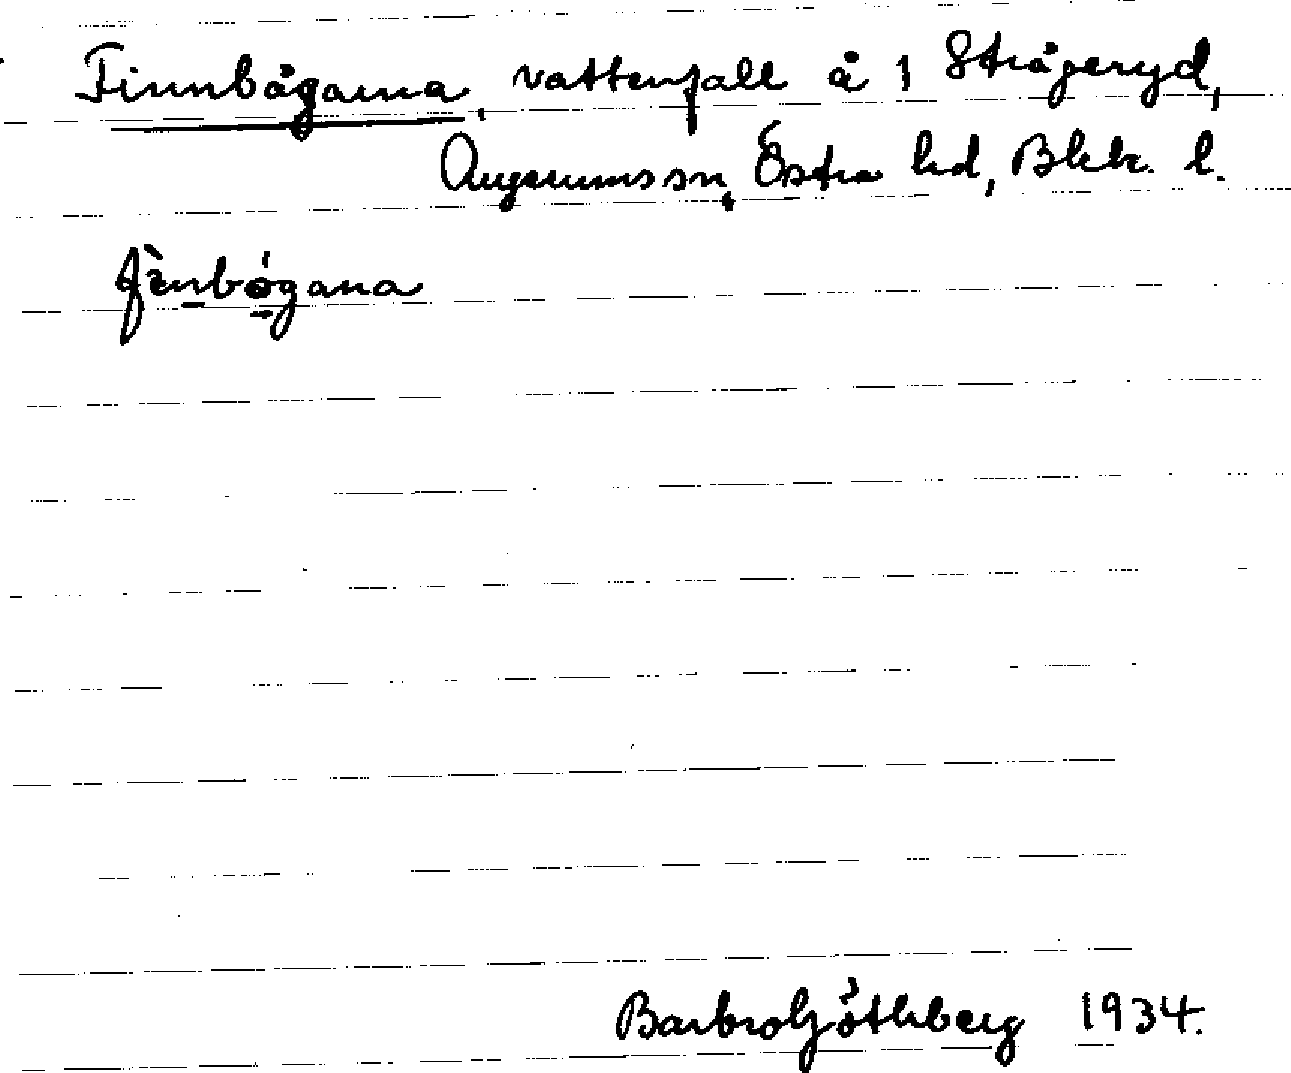 Finnbågarna, vattenfall å 1 Strågeryd,
Augerums sn, Östra hd, Blek. l.
fìnbógana
Barbro Göthberg 1934.